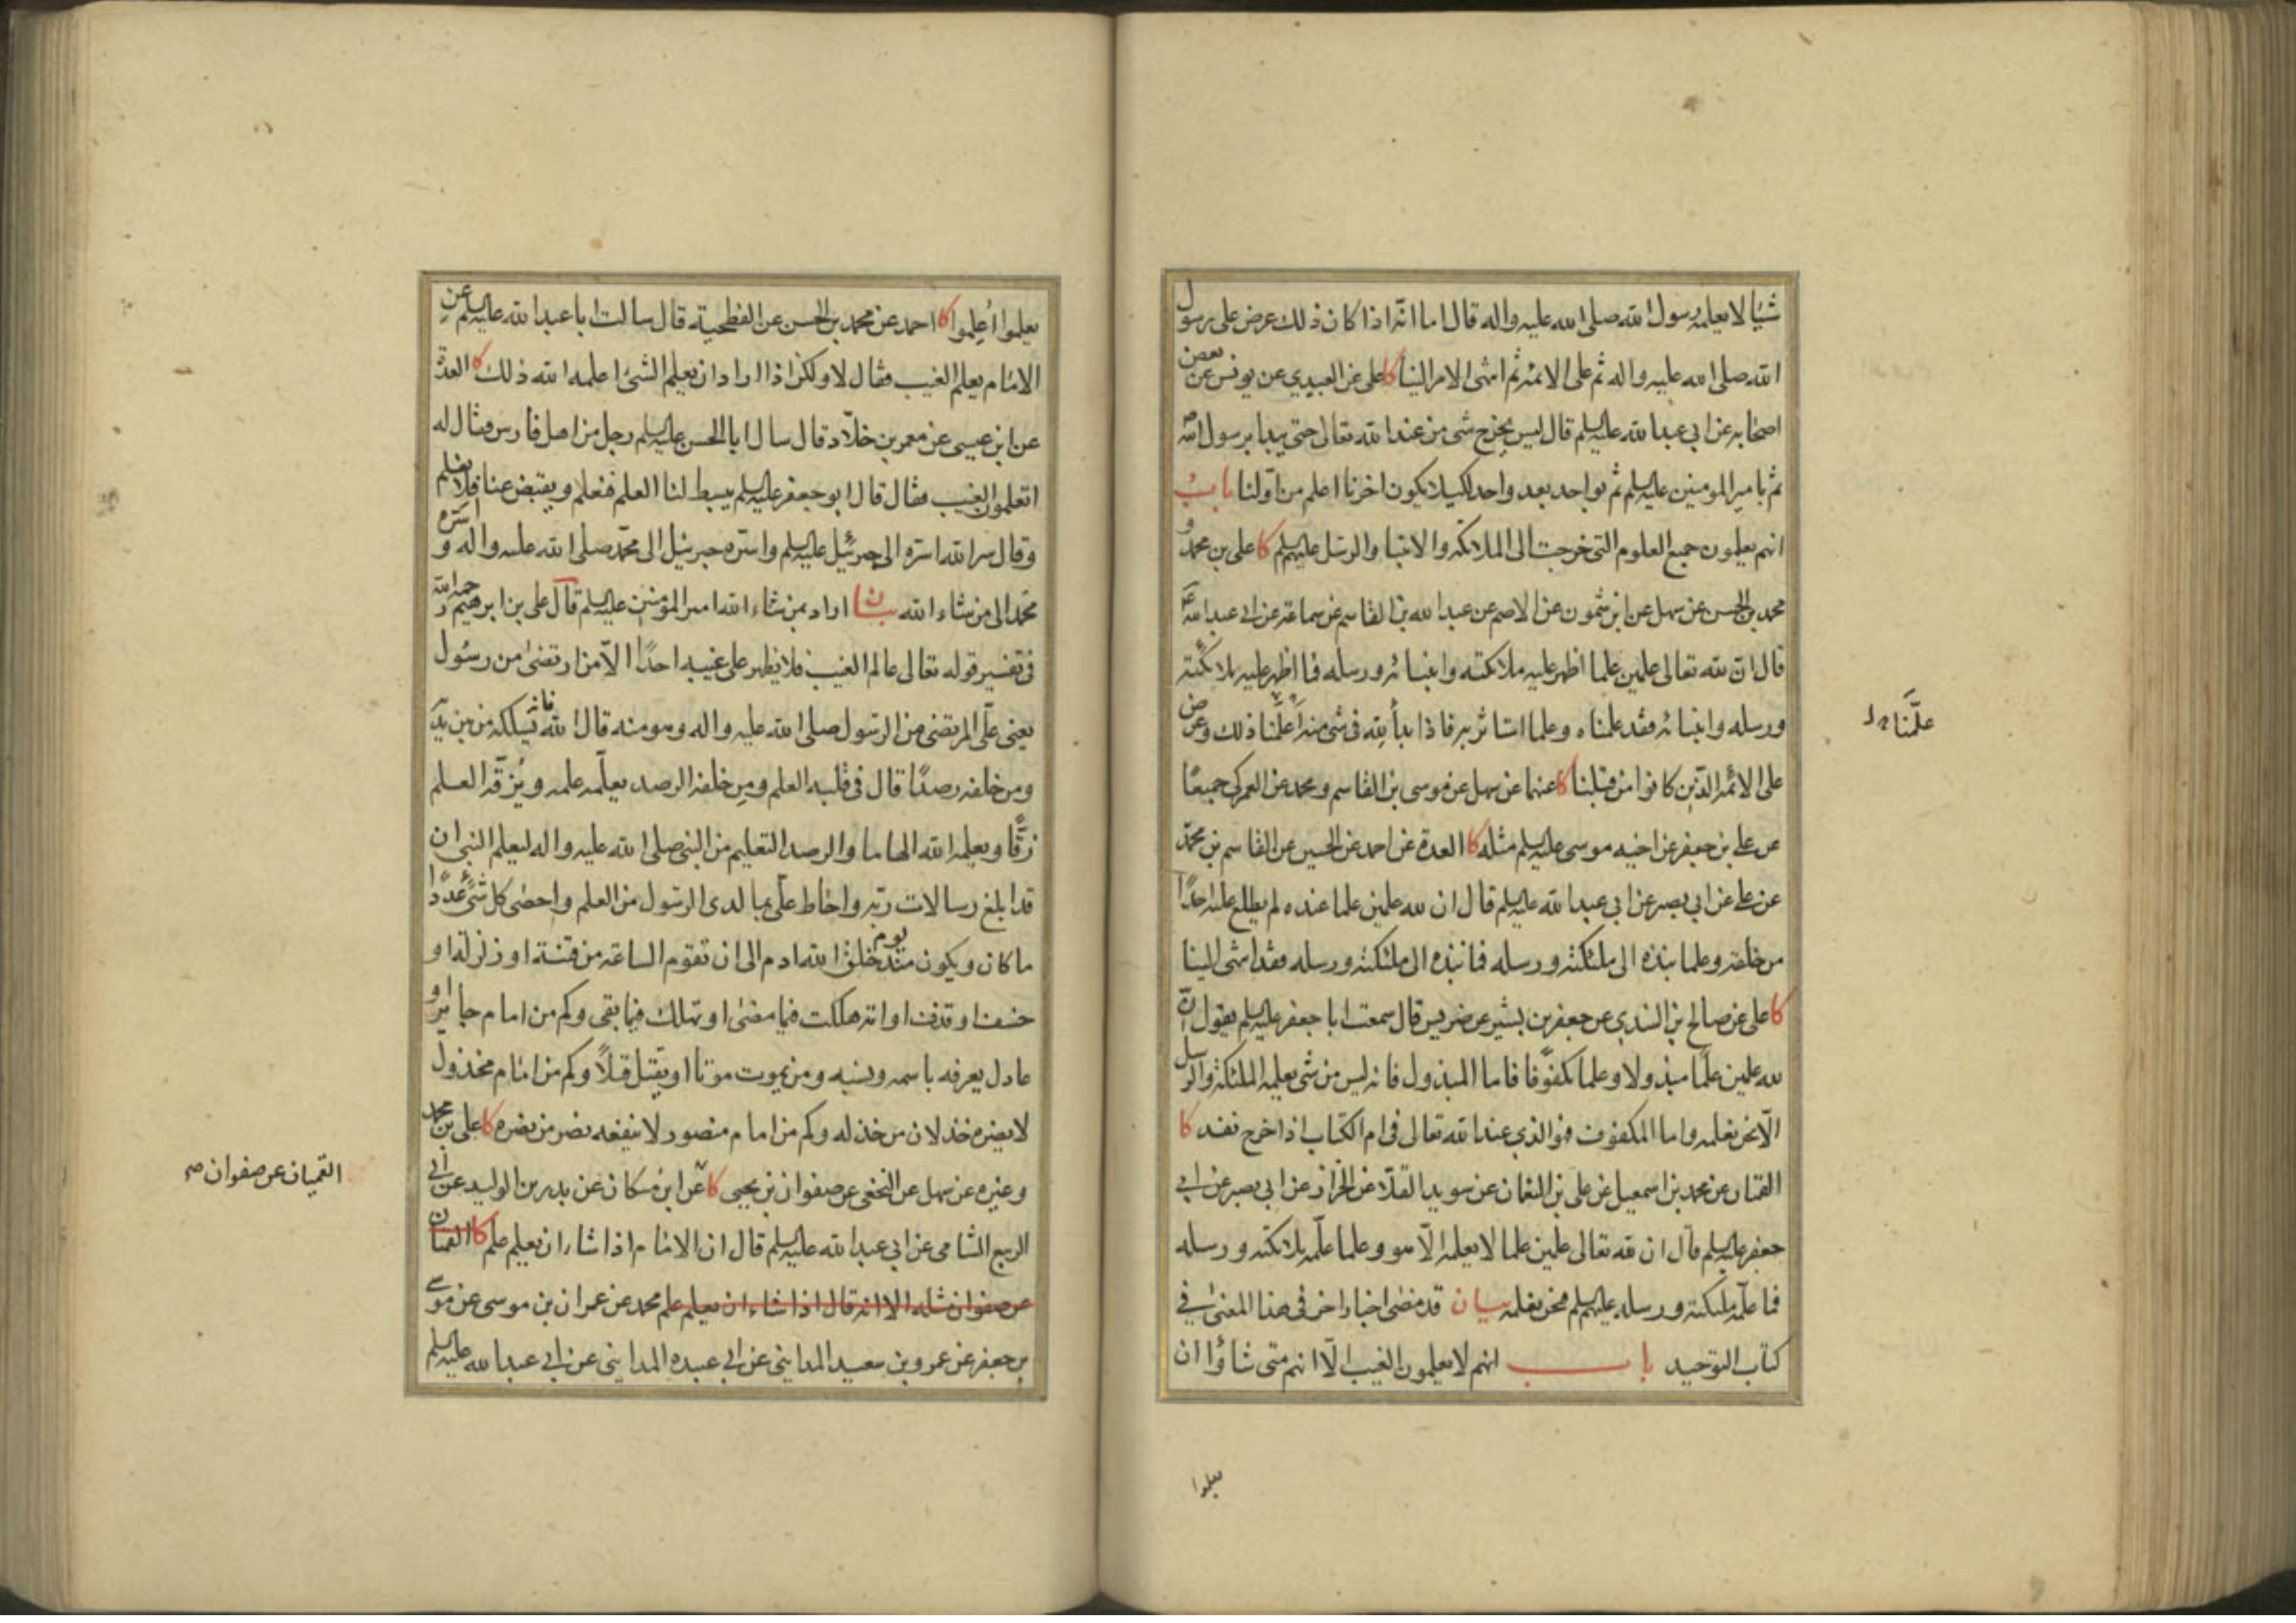 شيئا لا يعلمه رسول الله صلى الله عليه واله قال اما انه اذا كان ذلك عرض على رسول
الله صلى الله عليه واله ثم على الائمة ثم انتهى الامر الينا كا على عن العبيدي عن يونس عن بعض
اصحابه عن ابي عبد الله عليه السلم قال ليس يخرج شئ من عند الله تعالى حتى يبدا برسول الله ص
ثم بامير المومنين عليه السلم ثم بواحد بعد واحد لكيلا يكون اخرنا اعلم من اولنا باب
انهم يعلمون جميع العلوم التى خرجت الى الملائكة والانبيا والرسل عليهم السلم كا على بن محمد و
محمد بن الحسن عن سهل عن ابن شمون عن الاصم عن عبد الله بن القاسم عن سماعة عن ابي عبد الله ع
قال ان لله تعالى علمين علما اظهر عليه ملائكته وانبيائه ورسله فما اظهر عليه ملائكته
ورسله وانبيائه فقد علمناه وعلما استاثر به فاذا بدأ لله في شئ منه أعلمنا ذلك وعرض
على الائمة الذين كانوا من قبلنا كا عنهما عن سهل عن موسى بن القاسم ومحمد عن العمركي جميعا
عن على بن جعفر عن اخيه موسى عليه السلم مثله كا العدة عن احمد عن الحسين عن القاسم بن محمد
عن على عن ابي بصير عن ابي عبد الله عليه السلم قال ان لله علمين علما عنده لم يطلع عليه احدا
من خلقه وعلما نبذه الى ملئكته ورسله فما نبذه الى ملئكته ورسله فقد انتهى الينا
كا على عن صالح بن السندي عن جعفر بن بشير عن ضريس قال سمعت ابا جعفر عليه السلم يقول ان
لله علمين علما مبذولا وعلما مكفوفا فاما المبذول فانه ليس من شئ يعلمه الملئكة والرسل
الا نحن نعلمه واما المكفوف فهو الذي عند الله تعالى في ام الكتاب اذا خرج نفد كا
القميان عن محمد بن اسمعيل عن على بن النعمان عن سويد القلا عن الخزاز عن ابي بصير عن ابي
جعفر عليه السلم قال ان لله تعالى علمين علما لا يعلمه الا هو وعلما علمه ملائكته ورسله
فما علمه ملئكته ورسله عليهم السلم فنحن نعلمه بيان قد مضى اخبار اخر في هذا المعنى في
كتاب التوحيد باب انهم لا يعلمون الغيب الا انهم متى شاؤا ان
علمنا
يعلموا
يعلموا اعلموا كا احمد عن محمد بن الحسن عن الفطحية قال سالت ابا عبد الله عليه السلم عن
الامام يعلم الغيب فقال لا ولكن اذا اراد ان يعلم الشئ اعلمه الله ذلك كا العدة
عن ابن عيسى عن معمر بن خلاد قال سال ابا الحسن عليه السلم رجل من اهل فارس فقال له
اتعلمون الغيب فقال قال ابو جعفر عليه السلم يبسط لنا العلم فنعلم ويقبض عنا فلا نعلم
وقال سر الله اسره الى جبرئيل عليه السلم واسره جبرئيل الى محمد صلى الله عليه واله واسره
محمد الى من شاء الله بيان اراد بمن شاء الله امير المؤمنين عليه السلم قال على بن ابرهيم رحمه الله
في تفسير قوله تعالى عالم الغيب فلا يظهر على غيبه احدا الا من ارتضى من رسول
يعني على المرتضى من الرسول صلى الله عليه واله وهو منه قال الله فانه يسلك من بين يديه
ومن خلفه رصدا قال في قلبه العلم ومن خلفه الرصد يعلمه علمه ويزقه العلم
زقا ويعلمه الله الهاما والرصد التعليم من النبي صلى الله عليه واله ليعلم النبي ان
قد ابلغ رسالات ربه واحاط على بما لدى الرسول من العلم واحصى كل شئ عددا
ما كان ويكون منذ يوم خلق الله ادم الى ان تقوم الساعة من فتنة او زلزلة او
خسف او قذف او امة هلكت فيما مضى او تهلك فيما بقى وكم من امام جاير او
عادل يعرفه باسمه ونسبه ومن يموت موتا او يقتل قتلا وكم من امام مخذول
لا يضره خذلان من خذله وكم من امام منصور لا ينفعه نصر من نصره كا على بن محمد
وغيره عن سهل عن النخعى عن صفوان بن يحيى كا عن ابن مسكان عن بدر بن الوليد عن ابي
الربيع الشامى عن ابي عبد الله عليه السلم قال ان الامام اذا شاء ان يعلم علم كا القميان
عن صفوان مثله الا انه قال اذا شاء ان يعلم علم محمد عن عمران بن موسى عن موسى
بن جعفر عن عمرو بن سعيد المدايني عن ابي عبيده المدايني عن ابي عبد الله عليه السلم
القميان عن صفوان صح